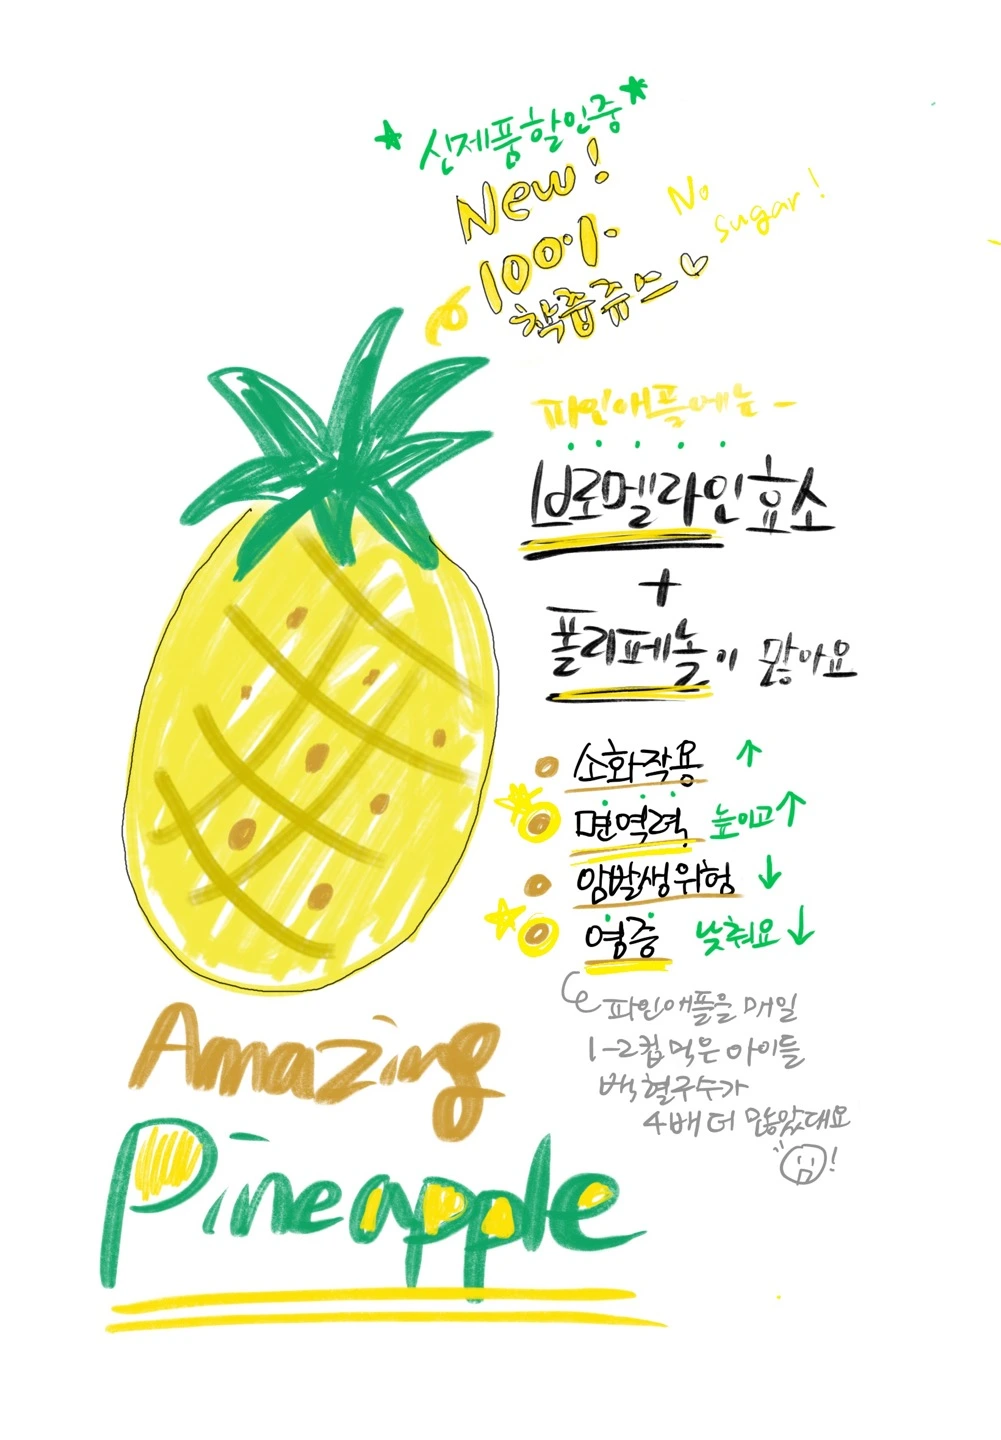 신제품할인중
New!
100%
착즙쥬스
No
sugar!
파인애플에는-
브로멜라인효소
+
폴리페놀이 많아요
소화작용 ↑
면역력, 높이고↑
암발생위험 ↓
염증 낮춰요↓
파인애플을 매일
1-2컵 먹은 아이들
백혈구수가
4배 더 많았대요
!
Amazing
Pineapple